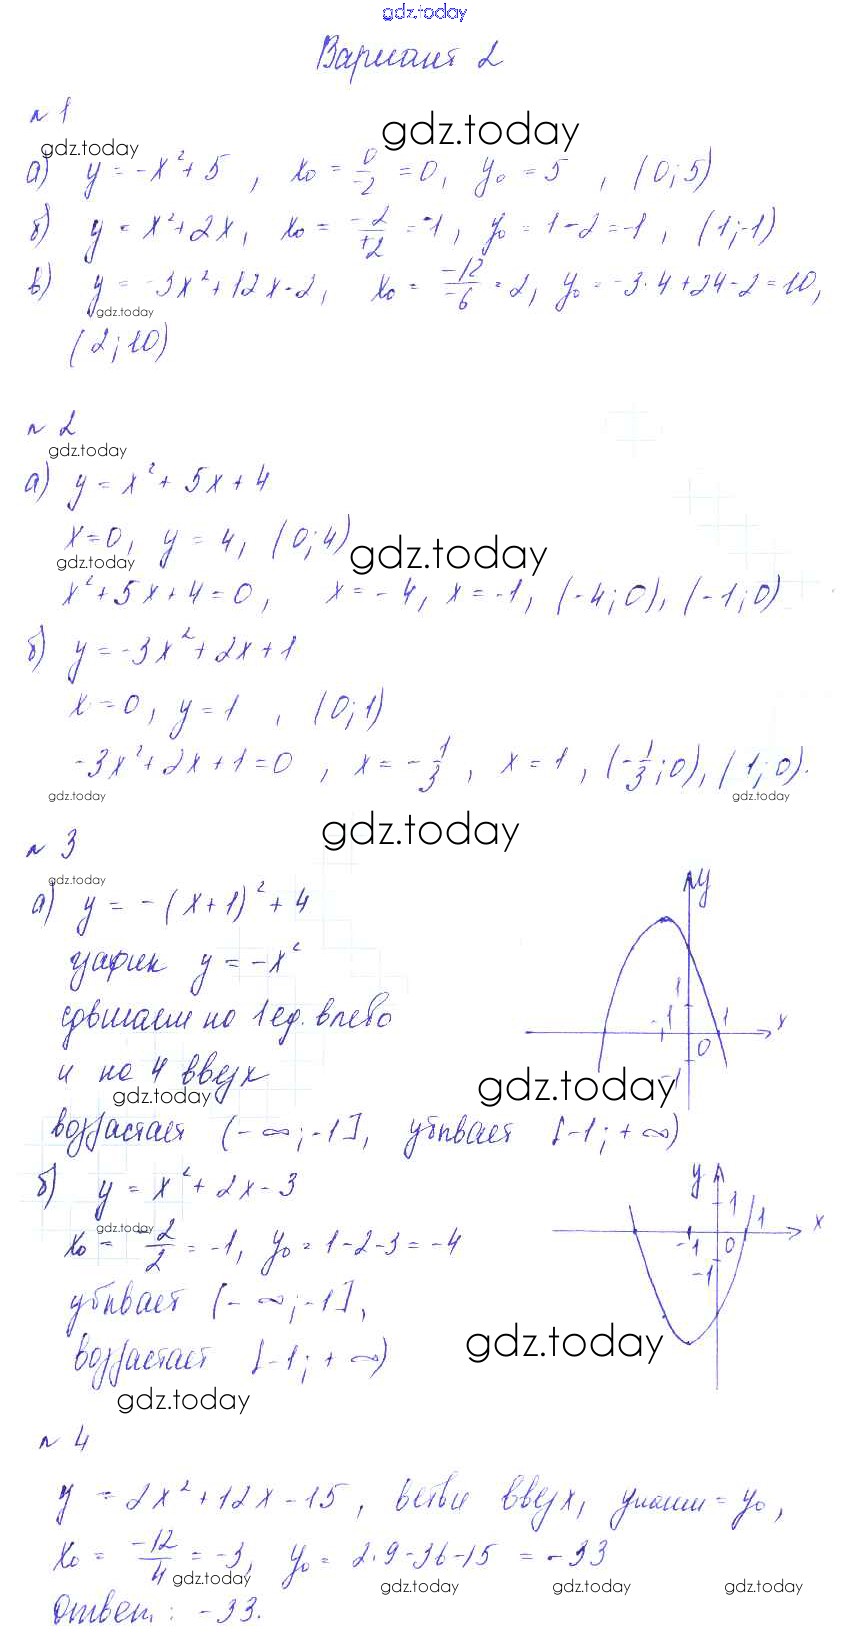 gdz.today
Вариант 2
n 1
gdz.today
gdz.today
а) y = -x²+5 , x₀ = 0/-2 = 0, y₀ = 5 , (0;5)
б) y = x²+2x, x₀ = -2/+2 = -1, y₀ = 1-2 = -1, (1;-1)
в) y = -3x²+12x-2, x₀ = -12/-6 = 2, y₀ = -3·4+24-2=10,
gdz.today
(2;10)
n 2
gdz.today
а) y = x²+ 5x+4
x=0, y = 4, (0;4)
gdz.today
gdz.today
x²+5x+4=0, x=-4, x=-1, (-4;0), (-1;0)
б) y = -3x²+2x+1
x=0, y=1 , (0;1)
-3x²+2x+1=0 , x=-1/3 , x=1 , (-1/3;0), (1;0).
gdz.today
gdz.today
gdz.today
n 3
gdz.today
а) y = -(x+1)²+4
график y = -x²
сдвигаем на 1 ед. влево
и на 4 вверх
y
1
-1
1
x
0
-1
gdz.today
gdz.today
возрастает (-∞;-1], убывает [-1;+∞)
б) y = x²+2x-3
gdz.today
x₀ = -2/2 = -1, y₀ = 1-2-3=-4
убывает (-∞;-1],
возрастает [-1;+∞)
y
1
1
x
-1
0
-1
gdz.today
gdz.today
n 4
y = 2x²+12x-15 , ветви вверх, yнаим = y₀,
x₀ = -12/4 = -3, y₀ = 2·9-36-15 = -33
gdz.today
gdz.today
gdz.today
gdz.today
Ответ: -33.